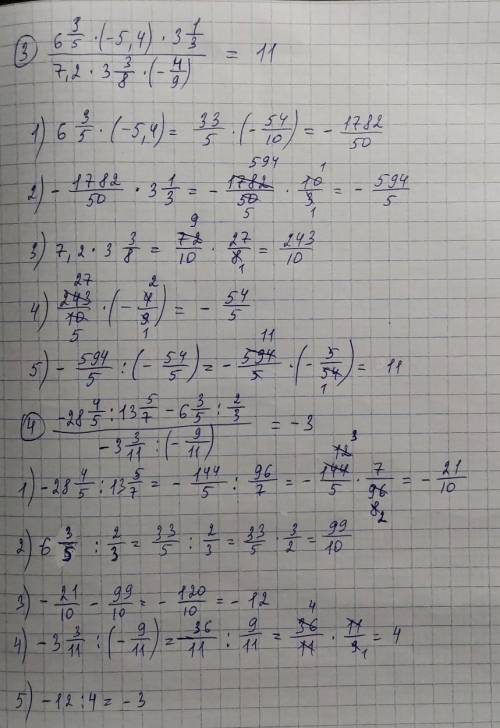 ③ (6 3/5 · (-5,4) · 3 1/3) / (7,2 · 3 3/8 · (-4/9)) = 11
1) 6 3/5 · (-5,4) = 33/5 · (-54/10) = - 1782/50
2) - 1782/50 · 3 1/3 = - 1782/50 · 10/3 = - 594/5
3) 7,2 · 3 3/8 = 72/10 · 27/8 = 243/10
4) 243/10 · (-4/9) = - 54/5
5) - 594/5 : (- 54/5) = - 594/5 · (- 5/54) = 11
④ (-28 4/5 : 13 5/7 - 6 3/5 : 2/3) / (-3 3/11 : (-9/11)) = -3
1) -28 4/5 : 13 5/7 = - 144/5 : 96/7 = - 144/5 · 7/96 = - 21/10
2) 6 3/5 : 2/3 = 33/5 : 2/3 = 33/5 · 3/2 = 99/10
3) - 21/10 - 99/10 = - 120/10 = - 12
4) -3 3/11 : (- 9/11) = 36/11 : 9/11 = 36/11 · 11/9 = 4
5) -12 : 4 = -3